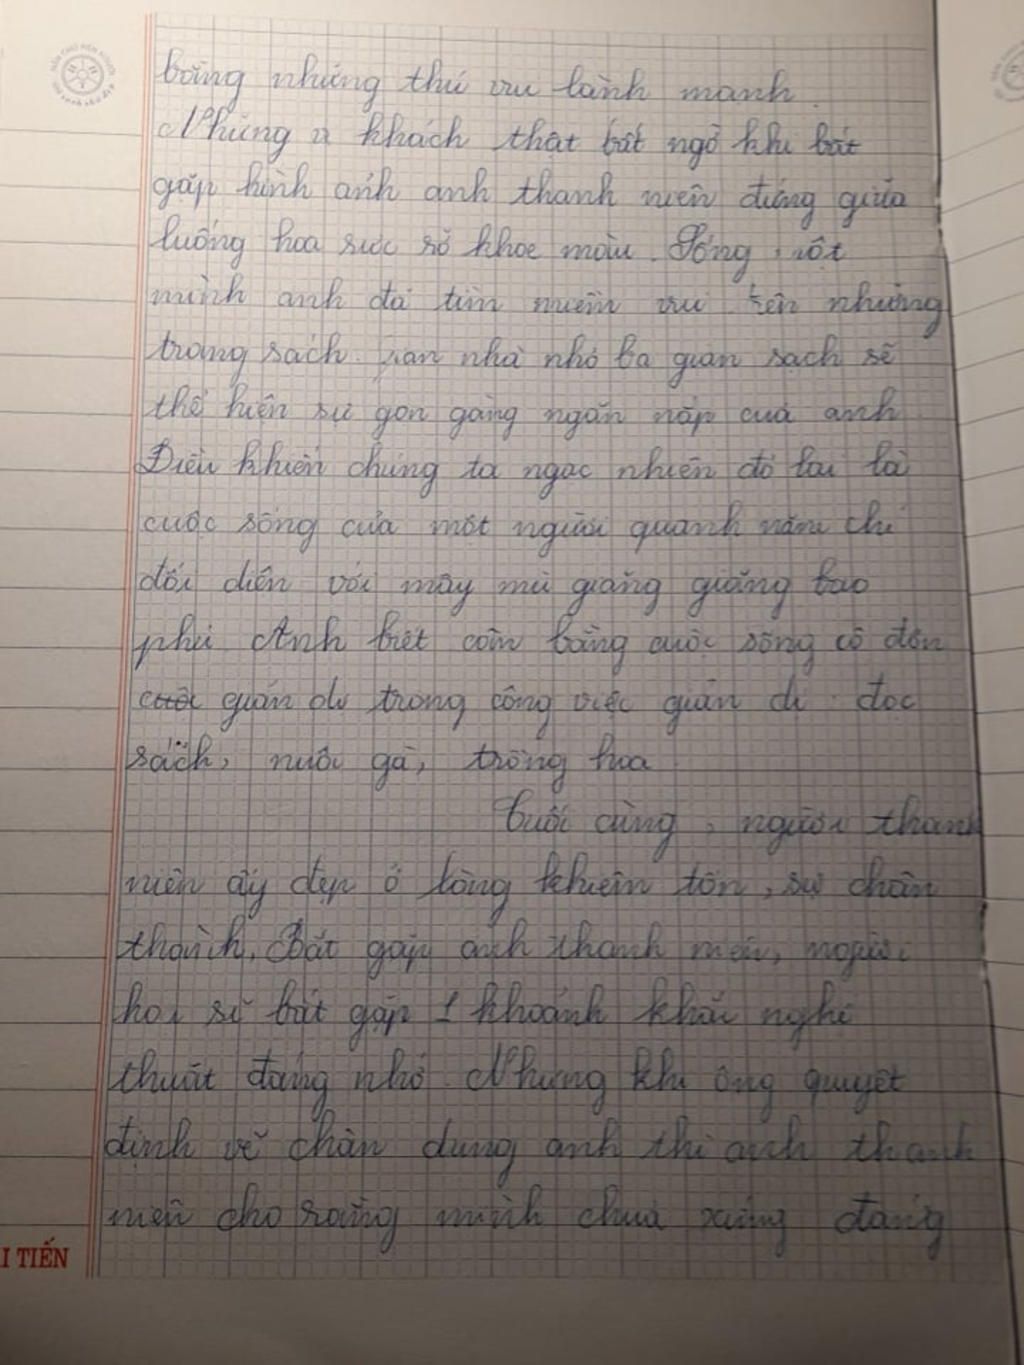 bằng những thú vui lành mạnh.
Những vị khách thật bất ngờ khi bắt
gặp hình ảnh anh thanh niên đứng giữa
luống hoa rực rỡ khoe màu. Sống một
mình anh đã tìm niềm vui trên những
trang sách. gian nhà nhỏ ba gian sạch sẽ
thể hiện sự gọn gàng ngăn nắp của anh
Điều khiến chúng ta ngạc nhiên đó lại là
cuộc sống của một người quanh năm chỉ
đối diện với mây mù giăng giăng bao
phủ. Anh biết cân bằng cuộc sống cô đơn
giản dị trong công việc giản dị đọc
sách, nuôi gà, trồng hoa
Cuối cùng, người thanh
niên ấy đẹp ở lòng khiêm tốn, sự chân
thành. Bắt gặp anh thanh niên, người
hoạ sĩ bắt gặp 1 khoảnh khắc nghệ
thuật đáng nhớ. Nhưng khi ông quyết
định vẽ chân dung anh thì anh thanh
niên cho rằng mình chưa xứng đáng
I TIẾN